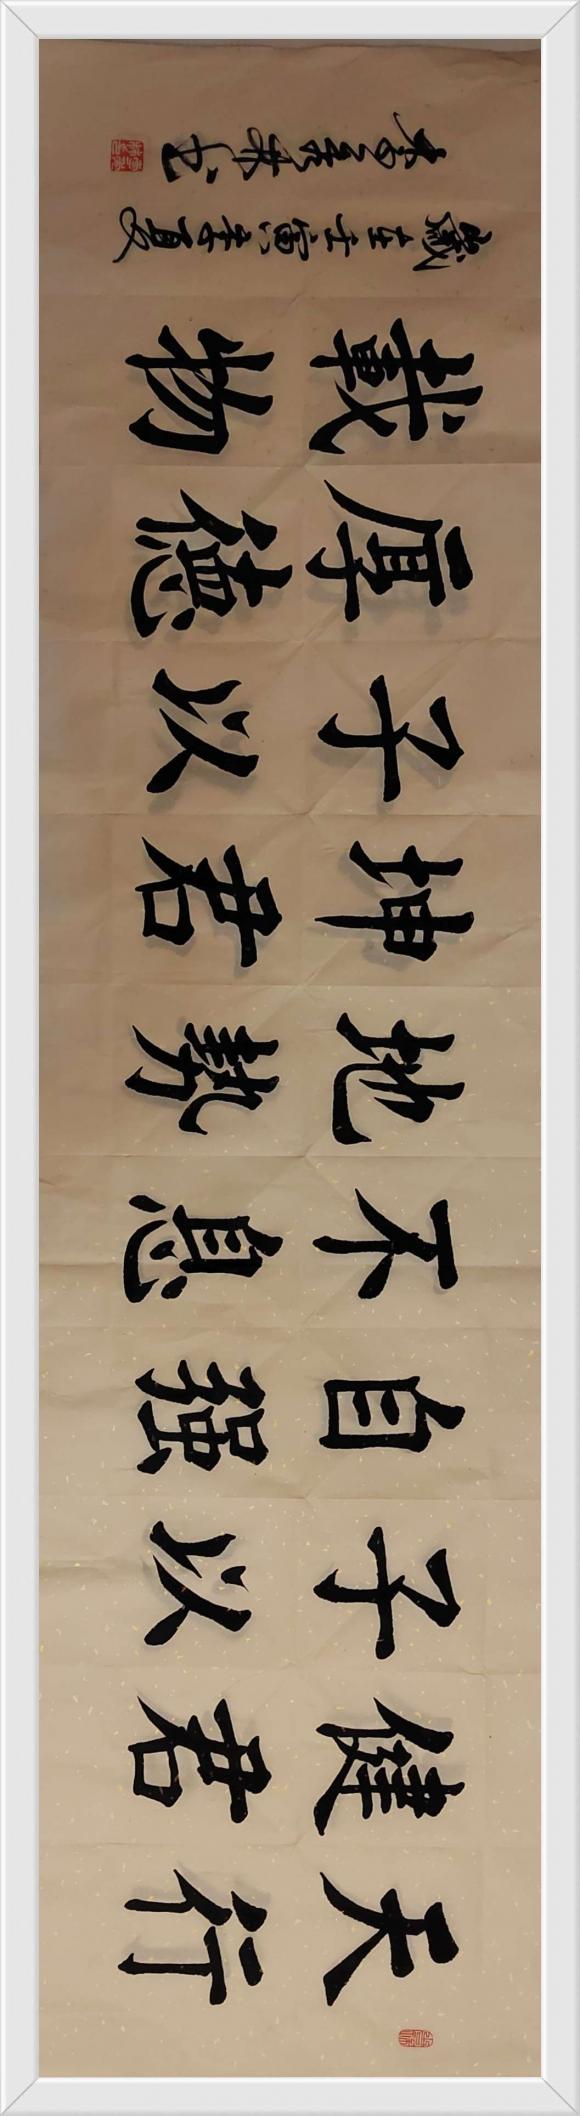 天行
健君
子以
自强
不息
地勢
坤君
子以
厚德
載物
歲在壬寅年夏